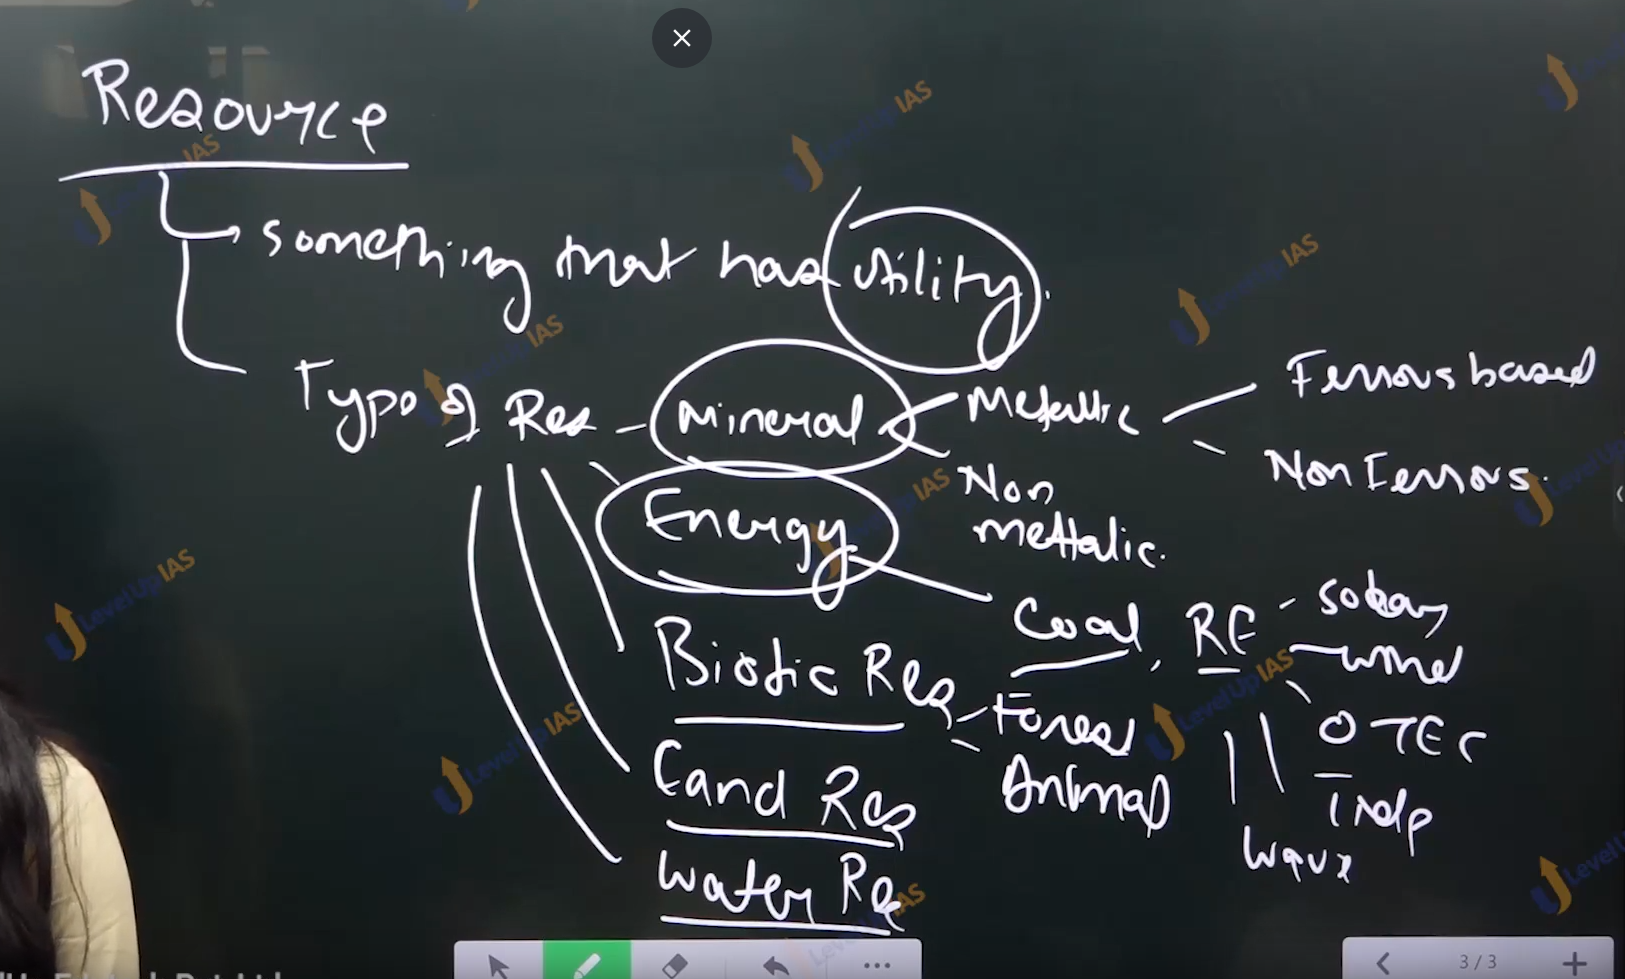 Resource
something that has utility.
Type of Res - Mineral
Metallic
Ferrous based
Non Ferrous.
Non
mettalic.
Energy
Coal, RE
solar
wind
OTEC
Tidal
Wave
Biotic Res
Forest
Animal
Land Res
Water Re
LevelUp IAS
3/3